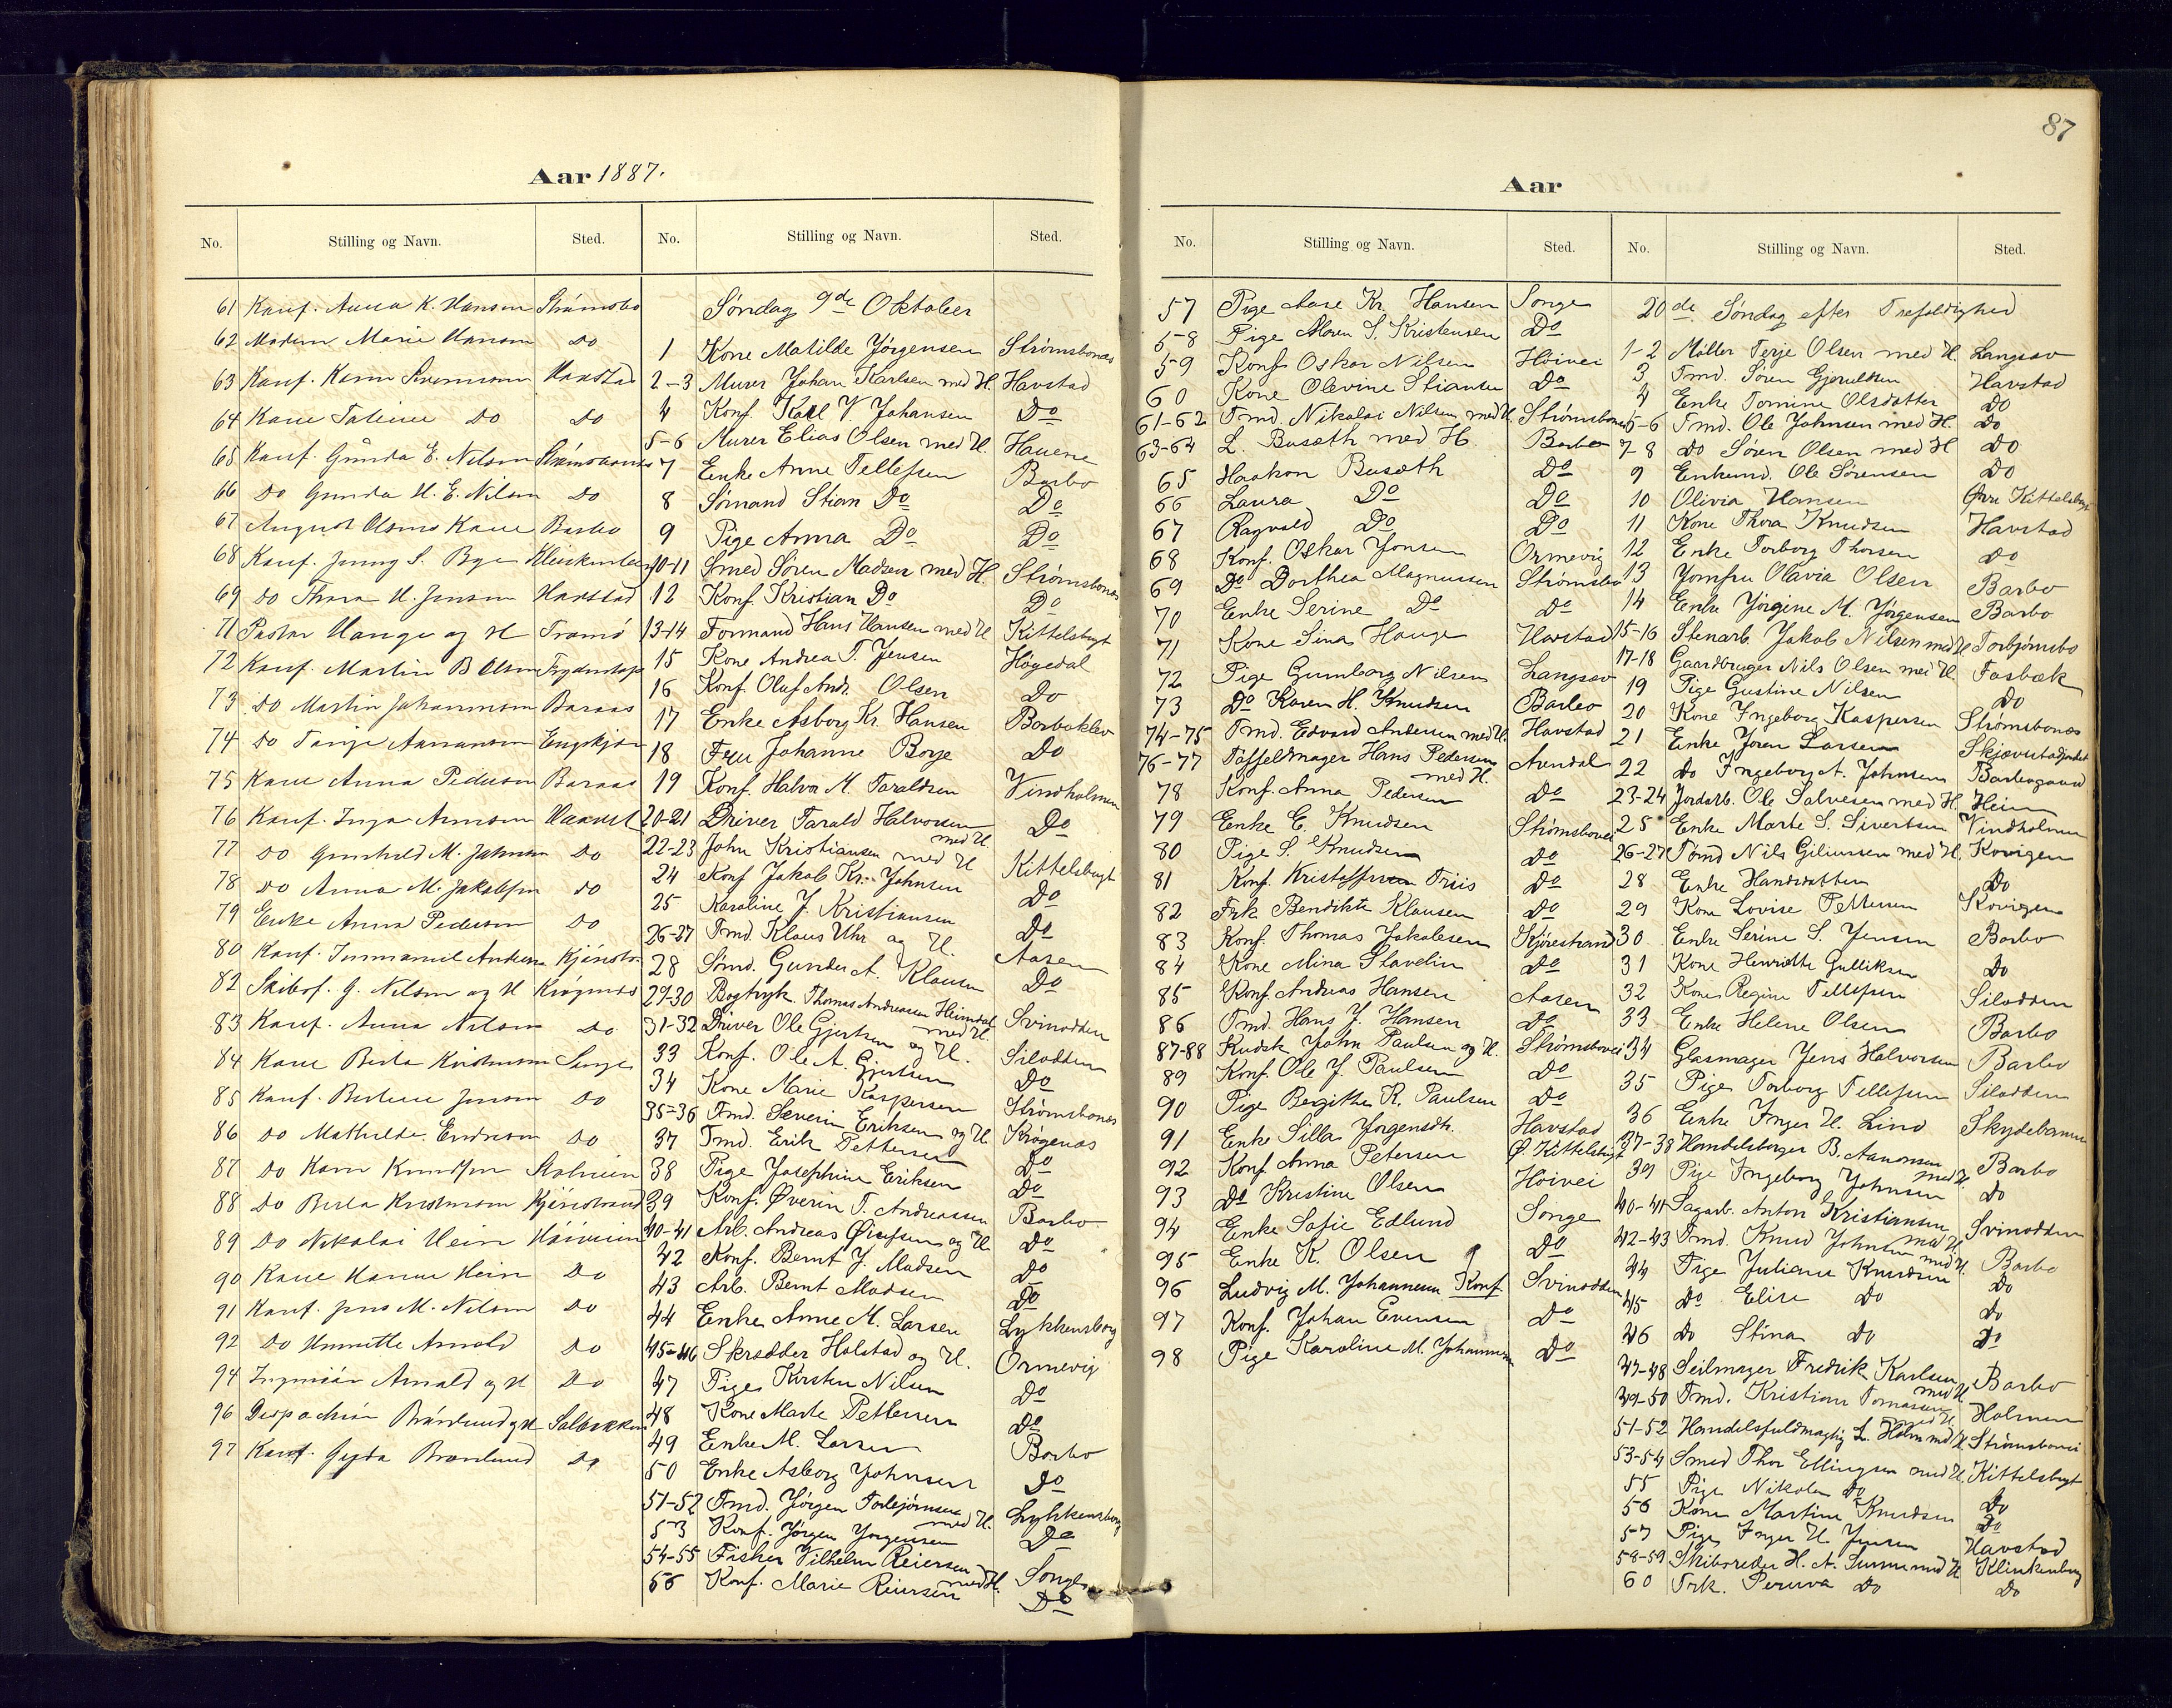 87
Aar 1887.
No. Stilling og Navn. Sted.
61 Konf. Anna K. Hansen Strømsbo
62 Madam Marie Hansen Do
63 Konf. Karen Svensen Havstad
64 Kone Taline Do Do
65 Konf. Gunda E. Nilsen Strømsbonæs
66 Do Gunda H. E. Nilsen Do
67 August Olsens Kone Barbo
68 Konf. Jenny S. Bye Klinkenberg
69 Do Thora H. Jensen Havstad
71 Pastor Hauge og H Tromø
72 Konf. Martin B Olsen
73 Do Martin Johannesen Baraas
74 Do Terje Aanansen Engekjær
75 Kone Anna Pedersen Baraas
76 Konf. Inga Arnesen
77 Do Gunhild M. Johnsen Do
78 Do Anna M. Jakobsen Do
79 Enke Anna Pedersen Do
80 Konf. Immanuel Andersen
82 Skibsf. G. Nilsen og H Krøgenæs
83 Konf. Anna Nilsen Do
84 Kone Berta Kristensen Songe
85 Konf. Bertine Jensen Do
86 Do Mathilde Endresen Do
87 Do Karen Knudsen
88 Do Berta Kristensen Kjørestrand
89 Do Nikolai Hein Høiveien
90 Kone Hanne Hein Do
91 Konf. Jens M. Nilsen Do
92 Do Arnold Do
94 Ingeniør Arnold og H Do
96 Despachør Brænlund og H Solbakken
97 Konf. Gyda Brænlund Do
No. Stilling og Navn. Sted.
Søndag 9de Oktober
1 Kone Matilde Jørgensen Strømsbonæs
2-3 Murer Johan Karlsen med H. Havstad
4 Konf. Karl V. Johansen Do
5-6 Murer Elias Olsen med H. Havene
7 Enke Anne Tellefsen Barbo
8 Sømand Stian Do Do
9 Pige Anna Do Do
10-11 Smed Søren Madsen med H. Strømsbonæs
12 Konf. Kristian Do Do
13-14 Formand Hans Hansen med H Kittelsbugt
15 Kone Andrea T. Jensen Høgedal
16 Konf. Oluf Andr. Olsen Do
17 Enke Asborg Kr. Hansen Barboklev
18 Fru Johanne Borge Do
19 Konf. Halvor M. Taraldsen Vindholmen
20-21 Driver Tarald Halvorsen med H. Do
22-23 John Kristiansen med H Kittelsbugt
24 Konf Jakob Kr. Johnsen Do
25 Karoline J. Kristiansen Do
26-27 Tmd. Klaus Uhr og H. Aasen
28 Sømd. Gunder A. Klausen Do
29-30 Bogtryk. Thomas Andreassen Heimdal med H. Svinodden
31-32 Driver Ole Gjertsen og H. Silodden
33 Konf. Ole A. Gjertsen Do
34 Kone Marie Kaspersen Strømsbonæs
35-36 Tmd. Severin Eriksen og H Krøgenæs
37 Tmd. Erik Pettersen Do
38 Pige Josephine Eriksen Do
39 Konf. Øverin T. Andreassen Barbo
40-41 Arb. Andreas og H. Do
42 Konf. Bernt J. Madsen Do
43 Arb. Bernt Madsen Do
44 Enke Anne M. Larsen Lykkensborg
45-46 Skrædder Halstad og H. Ormevig
47 Pige Kirsten Nilsen Do
48 Kone Marte Pettersen Do
49 Enke M. Larsen Barbo
50 Enke Asborg Johnsen Do
51-52 Tmd. Jørgen Torbjørnsen med H. Lykkensborg
53 Konf. Jørgen Jørgensen Do
54-55 Fisker Vilhelm Reiersen med H. Songe
56 Konf. Marie Reiersen Do
Aar
No. Stilling og Navn. Sted.
57 Pige Aase Kr. Hansen Songe
58 Pige Maren S. Kristensen Do
59 Konf Oskar Nilsen Høivei
60 Kone Olevine Stiansen Do
61-62 Tmd. Nikolai Nilsen med H. Strømsbonæs
63-64 L. Busæth med H. Barbo
65 Haakon Busæth Do
66 Laura Do Do
67 Ragvald Do Do
68 Konf. Oskar Jonsen Ormevig
69 Do Dorthea Magnussen Strømsbo
70 Enke Serine Do Do
71 Kone Sina Hauge Havstad
72 Pige Gumborg Nilsen Langsæv
73 Do Karen H. Knudsen Barbo
74-75 Tmd. Edvard Andersen med H. Havstad
76-77 Tøffelmager Hans Pedersen med H. Arendal
78 Konf. Anna Pedersen Do
79 Enke E. Knudsen Strømsbovei
80 Pige S. Knudsen Do
81 Konf. Kristoffersen Friis Do
82 Frk Bendikte Klausen Do
83 Konf. Thomas Jakobsen Kjørestrand
84 Kone Mina Slavelin Do
85 Konf. Andreas Hansen Aasen
86 Tmd. Hans J. Hansen Do
87-88 Kudsk John Paulsen og H. Strømsbovei
89 Konf. Ole J. Paulsen Do
90 Pige Bergitte R. Paulsen Do
91 Enke Silla Jørgensdt. Havstad
92 Konf. Anna Petersen Ø. Kittelsbugt
93 Do Kristine Olsen Høivei
94 Enke Sofie Edlund Songe
95 Enke K. Olsen Do
96 Ludvig M. Johannesen Konf Svinodden
97 Konf. Johan Evensen Do
98 Pige Karoline M. Johannesen Do
No. Stilling og Navn. Sted.
20de Søndag efter Trefoldighed
1-2 Møller Terje Olsen med H. Langsæv
3 Tmd. Søren Gjeruldsen Havstad
4 Enke Tomine Olsdatter Do
5-6 Tmd. Ole Johnsen med H. Do
7-8 Do Søren Olsen med H Do
9 Enkemd. Ole Sørensen Do
10 Olivia Hansen Øvre Kittelsbugt
11 Kone Thora Knudsen Havstad
12 Enke Torborg Thorsen Do
13 Jomfru Olavia Olsen Barbo
14 Enke Jørgine M. Jørgensen Barbo
15-16 Stenarb. Jakob Nilsen med H Torbjørnsbo
17-18 Gaardbruger Nils Olsen med H. Fosbæk
19 Pige Gustine Nilsen Do
20 Kone Ingeborg Kaspersen Strømsbonæs
21 Enke Joran Larsen
22 Do Ingeborg A. Johnsen Barbogaard
23-24 Jordarb. Ole Salvesen med H. Heim
25 Enke Marte S. Sivertsen Vindholmen
26-27 Tømd Nils Giliussen med H. Kovigen
28 Enke Handsdatter Do
29 Kone Lovise Pettersen Kovigen
30 Enke Serine S. Jensen Barbo
31 Kone Henriette Gulliksen Do
32 Kone Regine Tellefsen Silodden
33 Enke Helene Olsen Barbo
34 Glasmager Jens Halvorsen Barbo
35 Pige Torborg Tellefsen Silodden
36 Enke Inger H. Lind Skydebanen
37-38 Handelsborger B. Aanonsen med H. Barbo
39 Pige Ingeborg Johnsen Do
40-41 Sagarb. Anton Kristiansen med H. Svinodden
42-43 Tmd. Knud Johnsen med H. Barbo
44 Pige Juliane Knudsen Do
45 Do Elise Do Do
46 Do Stina Do Do
47-48 Seilmager Fredrik Karlsen med H Barbo
49-50 Tmd. Kristian Tomassen med H. Holmen
51-52 Handelsfuldmægtig L. Holm med H. Strømsbovei
53-54 Smed Thor Ellingsen med H. Kittelsbugt
55 Pige Nikola Do Do
56 Kone Martine Knudsen Do
57 Pige Inger H. Jensen Havstad
58-59 Skibsreder H. A. med H Klinkenberg
60 Frk. Do Do